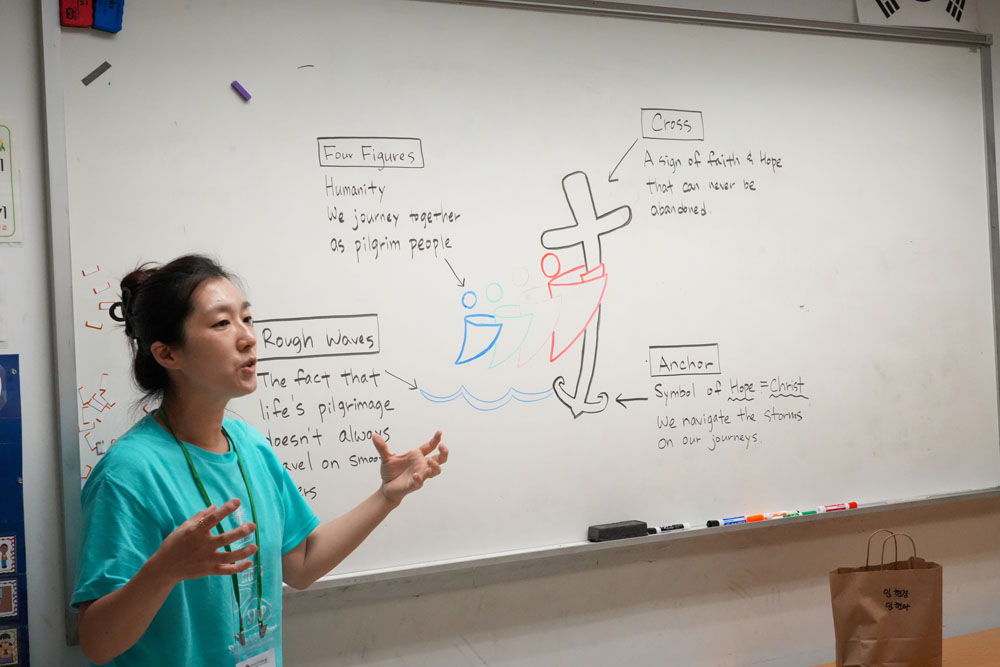 Four Figures
Humanity
We journey together
as pilgrim people
Cross
A sign of faith & Hope
that can never be
abandoned.
Rough Waves
The fact that
life's pilgrimage
doesn't always
travel on smooth
Anchor
Symbol of Hope = Christ
We navigate the storms
on our journeys.